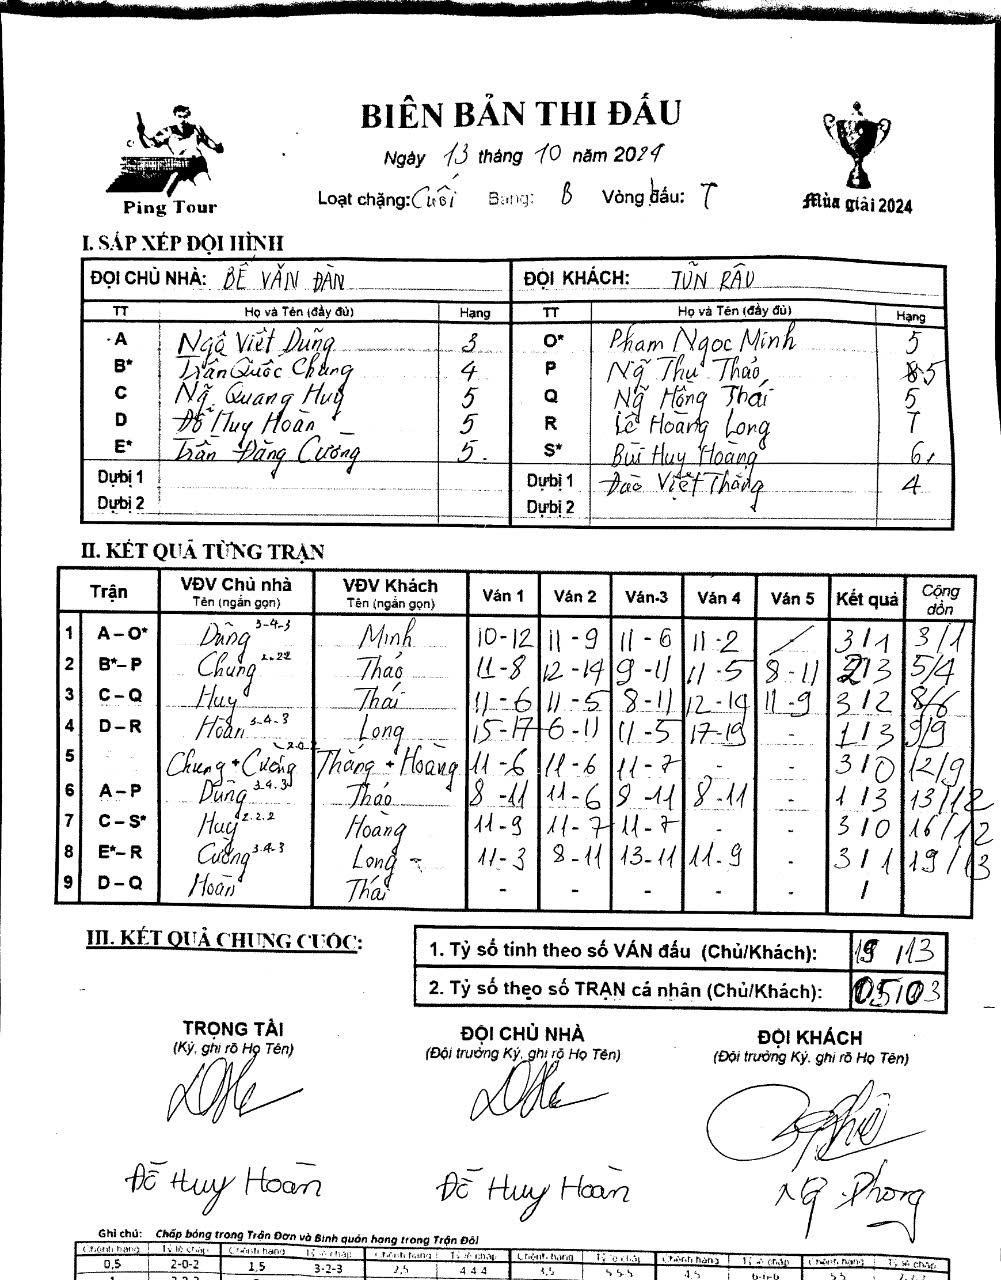 BIÊN BẢN THI ĐẤU
Ngày 13 tháng 10 năm 2024
Ping Tour
Loạt chặng: Cuối Bảng: B Vòng đấu: T
Mùa giải 2024
I. SẮP XẾP ĐỘI HÌNH
ĐỘI CHỦ NHÀ: BẾ VĂN ĐÀN ĐỘI KHÁCH: TUẤN RÂU
TT Họ và Tên (đầy đủ) Hạng TT Họ và Tên (đầy đủ) Hạng
A Ngô Viết Dũng 3 O* Phạm Ngọc Minh 5
B* Trần Quốc Chung 4 P Ng Thu Thảo 5
C Ng Quang Huy 5 Q Ng Hồng Thái 5
D Đỗ Huy Hoàn 5 R Lê Hoàng Long 7
E* Trần Đăng Cường 5 S* Bùi Huy Hoàng 6
Dự bị 1 Dự bị 1 Đào Việt Thắng 4
Dự bị 2 Dự bị 2
II. KẾT QUẢ TỪNG TRẬN
Trận VĐV Chủ nhà Tên (ngắn gọn) VĐV Khách Tên (ngắn gọn) Ván 1 Ván 2 Ván 3 Ván 4 Ván 5 Kết quả Cộng dồn
1 A – O* Dũng 3-4-3 Minh 10-12 11-9 11-6 11-2 / 3/1 3/1
2 B* – P Chung 2-2-2 Thảo 11-8 12-14 9-11 11-5 8-11 2/3 5/4
3 C – Q Huy Thái 11-6 11-5 8-11 12-14 11-9 3/2 8/6
4 D – R Hoàn 3-4-3 Long 15-17 6-11 11-5 17-19 - 1/3 9/9
5 Chung + Cường 2-0-2 Thắng + Hoàng 11-6 11-6 11-7 - - 3/0 12/9
6 A – P Dũng 3-4-3 Thảo 8-11 11-6 9-11 8-11 - 1/3 13/12
7 C – S* Huy 2-2-2 Hoàng 11-9 11-7 11-7 - - 3/0 16/12
8 E* – R Cường 3-4-3 Long 11-3 8-11 13-11 11-9 - 3/1 19/13
9 D – Q Hoàn Thái - - - - - /
III. KẾT QUẢ CHUNG CUỘC:
1. Tỷ số tính theo số VÁN đấu (Chủ/Khách): 19/13
2. Tỷ số theo số TRẬN cá nhân (Chủ/Khách): 05/03
TRỌNG TÀI ĐỘI CHỦ NHÀ ĐỘI KHÁCH
(Ký, ghi rõ Họ Tên) (Đội trưởng Ký, ghi rõ Họ Tên) (Đội trưởng Ký, ghi rõ Họ Tên)
Đỗ Huy Hoàn Đỗ Huy Hoàn Ng Phong
Ghi chú: Chấp bóng trong Trận Đơn và Bình quân hạng trong Trận Đôi
Chênh hạng Tỷ lệ chấp Chênh hạng Tỷ lệ chấp Chênh hạng Tỷ lệ chấp Chênh hạng Tỷ lệ chấp Chênh hạng Tỷ lệ chấp Chênh hạng Tỷ lệ chấp
0,5 2-0-2 1,5 3-2-3 2,5 4-4-4 3,5 5-5-5 4,5 6-6-6 5,5